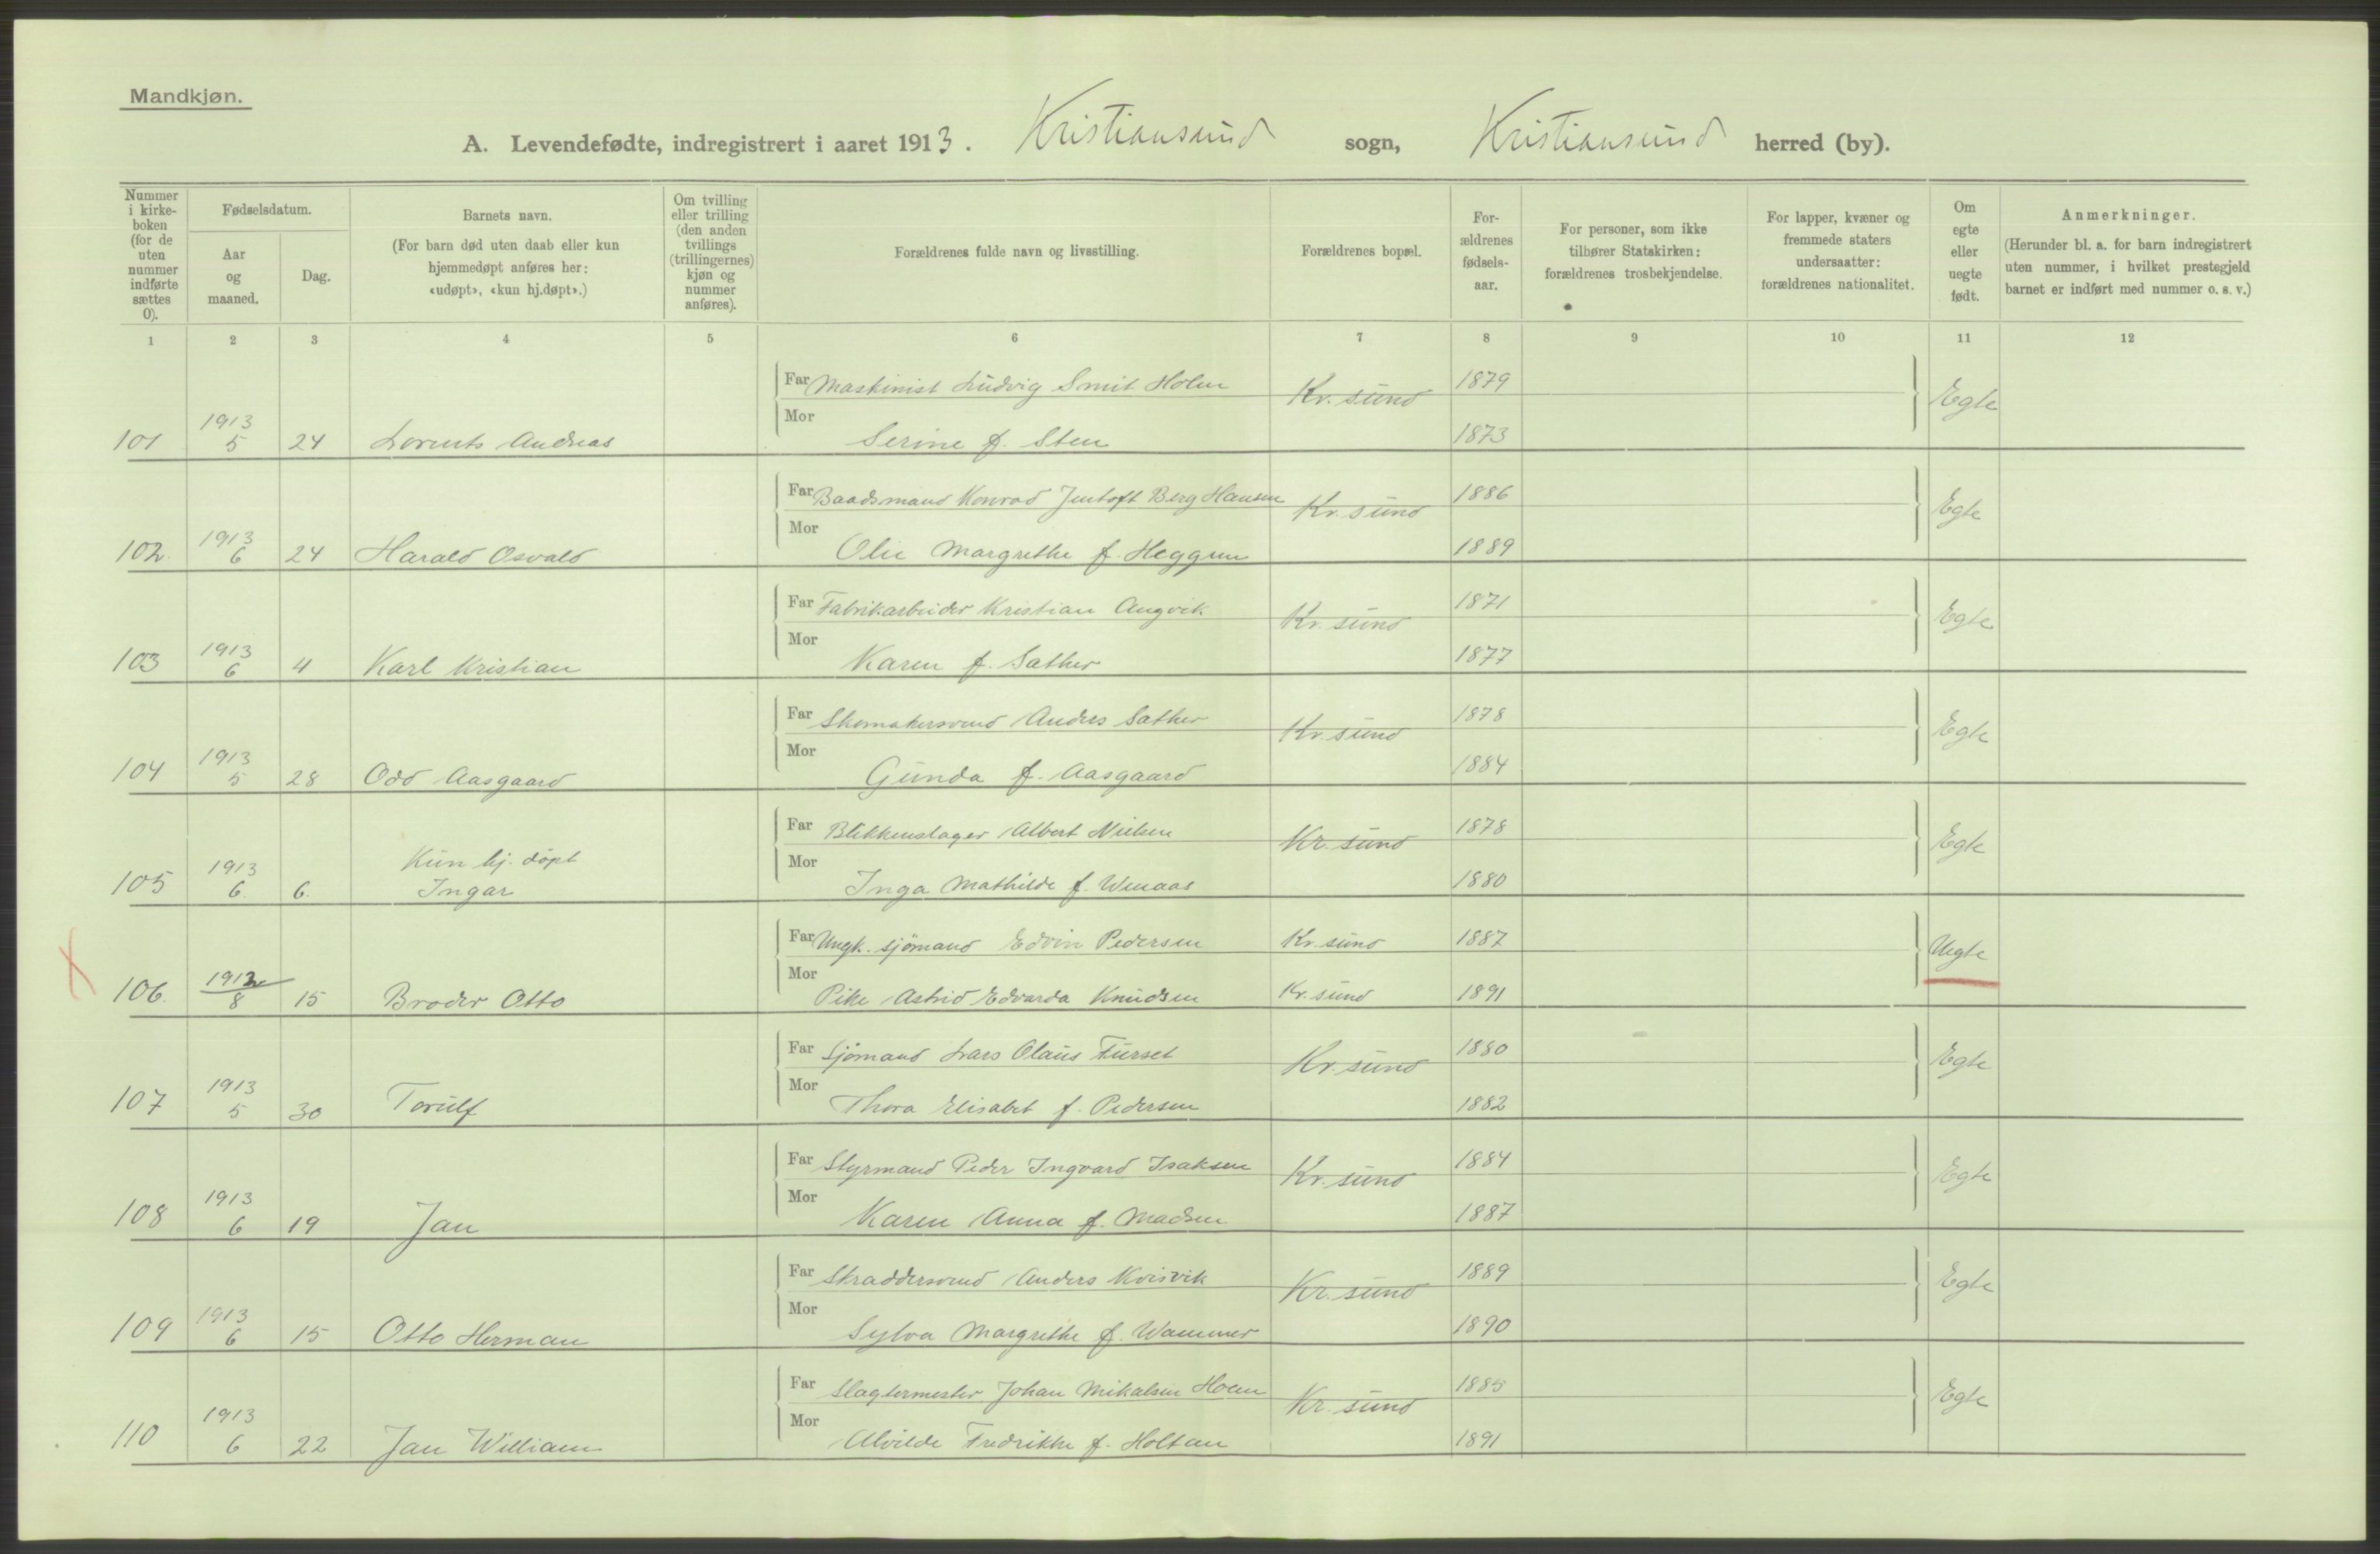 Mandkjøn.
A. Levendefødte, indregistrert i aaret 1913. Kristiansund sogn, Kristiansund herred (by).
Nummer i kirke-boken (for de uten nummer indførte sættes 0).
Fødselsdatum.
Aar og maaned.
Dag.
Barnets navn.
(For barn død uten daab eller kun hjemmedøpt anføres her: «udøpt», «kun hj.døpt».)
Om tvilling eller trilling (den anden tvillings (trillingernes) kjøn og nummer anføres).
Forældrenes fulde navn og livsstilling.
Forældrenes bopæl.
For-ældrenes fødsels-aar.
For personer, som ikke tilhører Statskirken: forældrenes trosbekjendelse.
For lapper, kvæner og fremmede staters undersaatter: forældrenes nationalitet.
Om egte eller uegte født.
Anmerkninger.
(Herunder bl. a. for barn indregistrert uten nummer, i hvilket prestegjeld barnet er indført med nummer o. s. v.)
1 2 3 4 5 6 7 8 9 10 11 12
Far Maskinist Ludvig Smit Holm Kr.sund 1879 Egte
101 1913 5 24 Lorents Andreas Mor Serine f. Sten 1873
Far Baadsmand Konrad Jentoft Berg Hansen Kr.sund 1886 Egte
102. 1913 6 24 Harald Osvald Mor Olie Margrethe f. Heggem 1889
Far Fabrikarbeider Kristian Angvik Kr.sund 1871 Egte
103 1913 6 4 Karl Kristian Mor Karen f. Sather 1877
Far Skomakersvend Anders Sather Kr.sund 1878 Egte
104 1913 5 28 Odd Aasgaard Mor Gunda f. Aasgaard 1884
Far Blikkenslager Albert Nielsen Kr.sund 1878 Egte
105 1913 6. 6. Kun hj. døpt Ingar Mor Inga Mathilde f. Wenaas 1880
Far Ungk. sjømand Edvin Pedersen Kr.sund 1887 Uegte
106. 1912 8 15 Broder Otto Mor Pike Astrid Edvarda Knudsen Kr.sund 1891
Far Sjømand Lars Olaus Furset Kr.sund 1880 Egte
107 1913 5 30 Torulf Mor Thora Elisabet f. Pedersen 1882
Far Styrmand Peder Ingvard Isaksen Kr.sund 1884 Egte
108 1913 6 19 Jan Mor Karen Anna f. Madsen 1887
Far Skræddersvend Anders Kvisvik Kr.sund 1889 Egte
109 1913 6 15 Otto Herman Mor Sylva Margrethe f. Wammer 1890
Far Slagtermester Johan Mikalsen Hoem Kr.sund 1885 Egte
110 1913 6 22 Jan William Mor Alvilde Fredrikke f. Holtan 1891